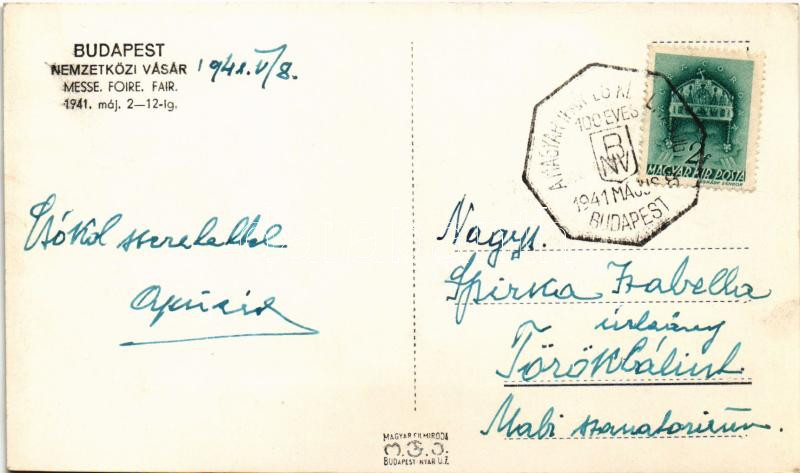 BUDAPEST
NEMZETKÖZI VÁSÁR
MESSE. FOIRE. FAIR.
1941. máj. 2—12-ig.
1941. V/8.
Csókol szeretettel
Apukád
A MAGYAR IPAR
100 ÉVES
BNV
1941 MÁJUS 8
BUDAPEST
2f
MAGYAR KIR. POSTA
Nagys.
Spirka Izabella
úrleány
Törökbálint
Mabi szanatorium.
MAGYAR FILMIRODA
M.F.I.
BUDAPEST-NYÁR U.7.